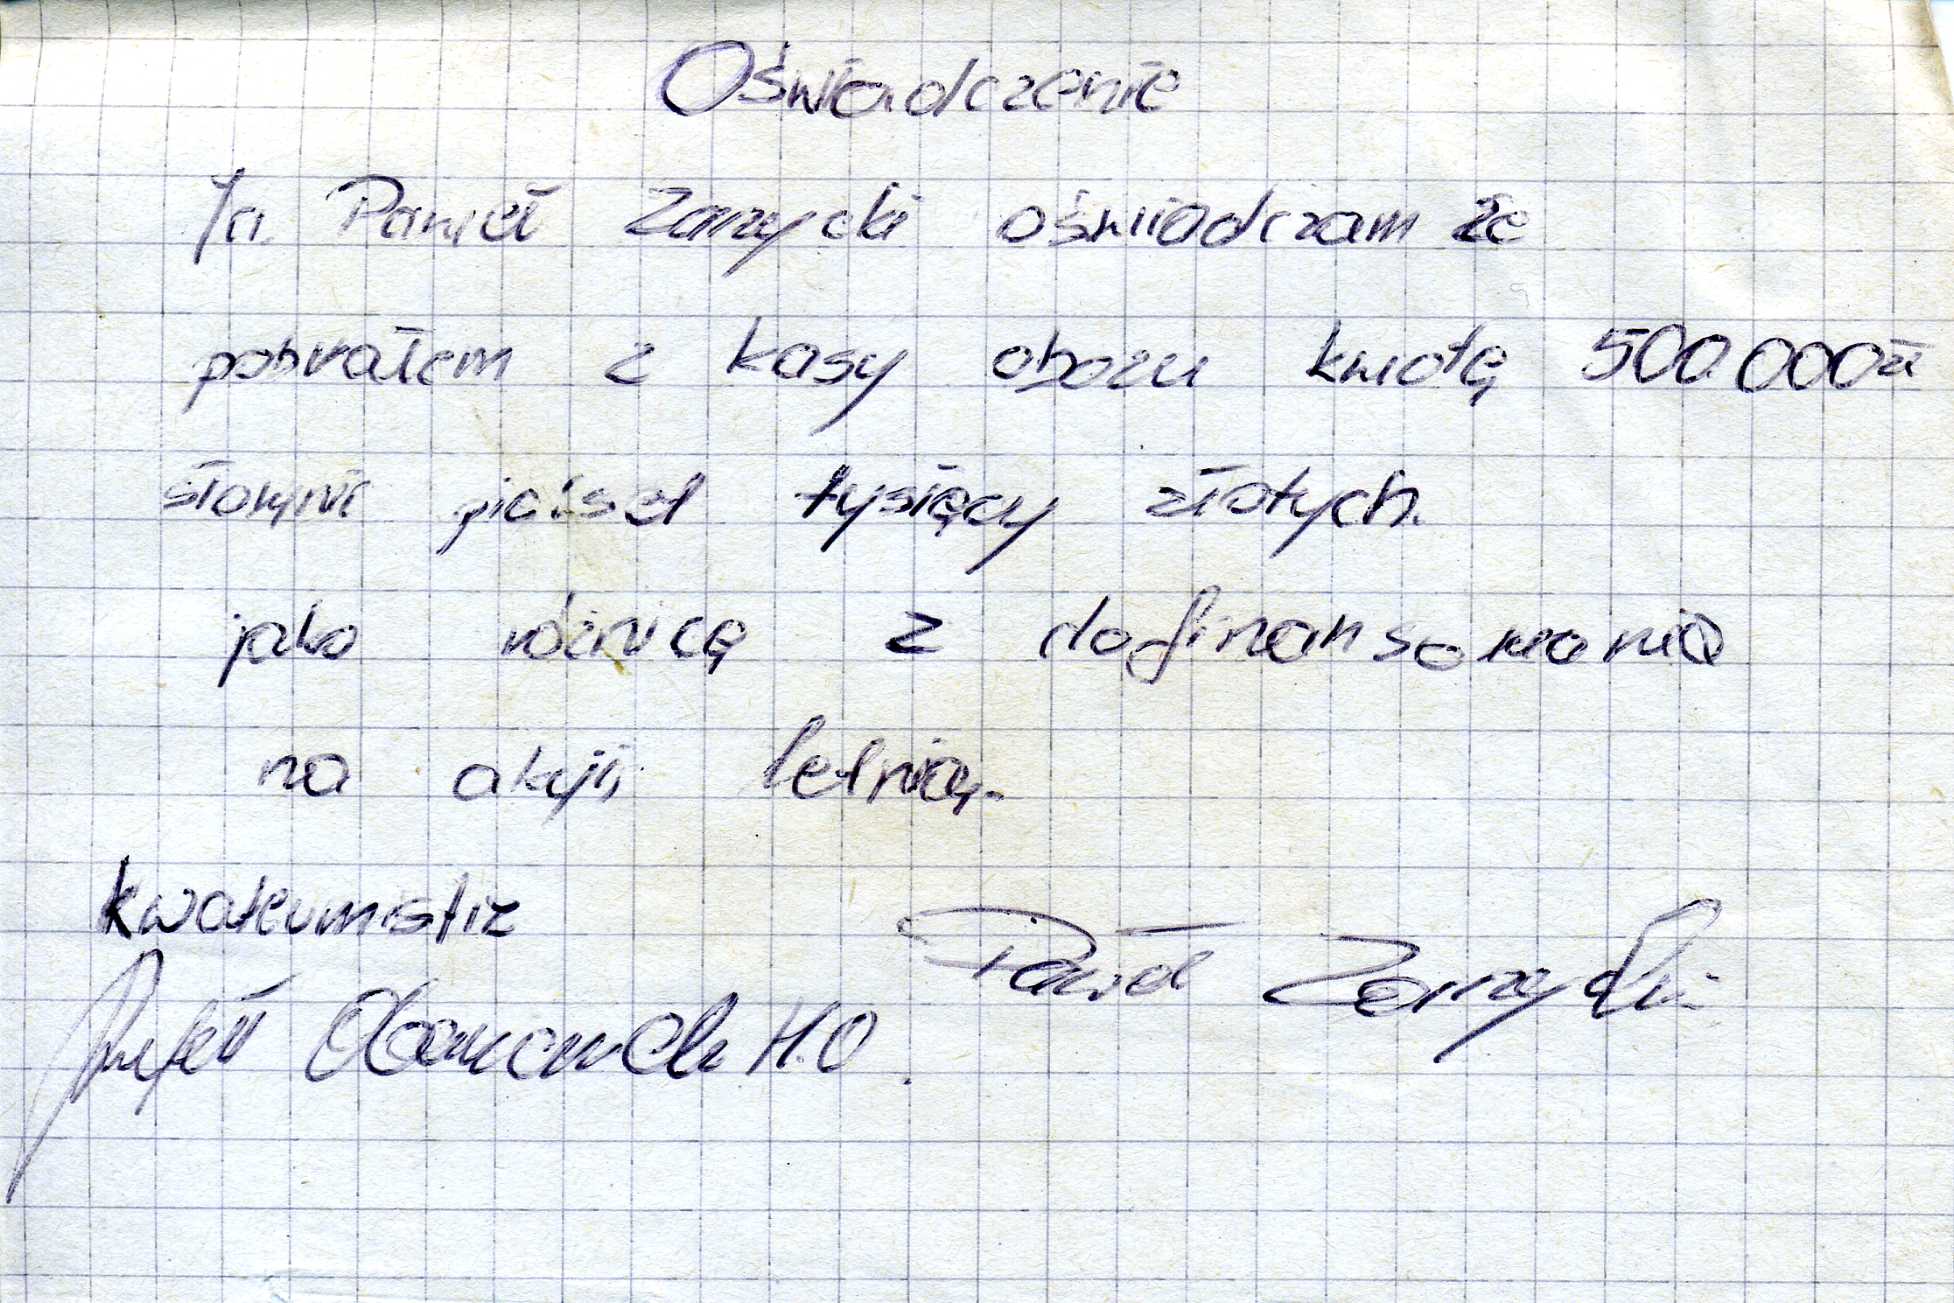 Oświadczenie
Ja Paweł Zarzycki oświadczam że
pobrałem z kasy obozu kwotę 500.000 zł
słownie pięćset tysięcy złotych.
jako różnicę z dofinansowania
na akcji letnią.
kwatermistrz
Paweł Zarzycki
Rafał H.O.